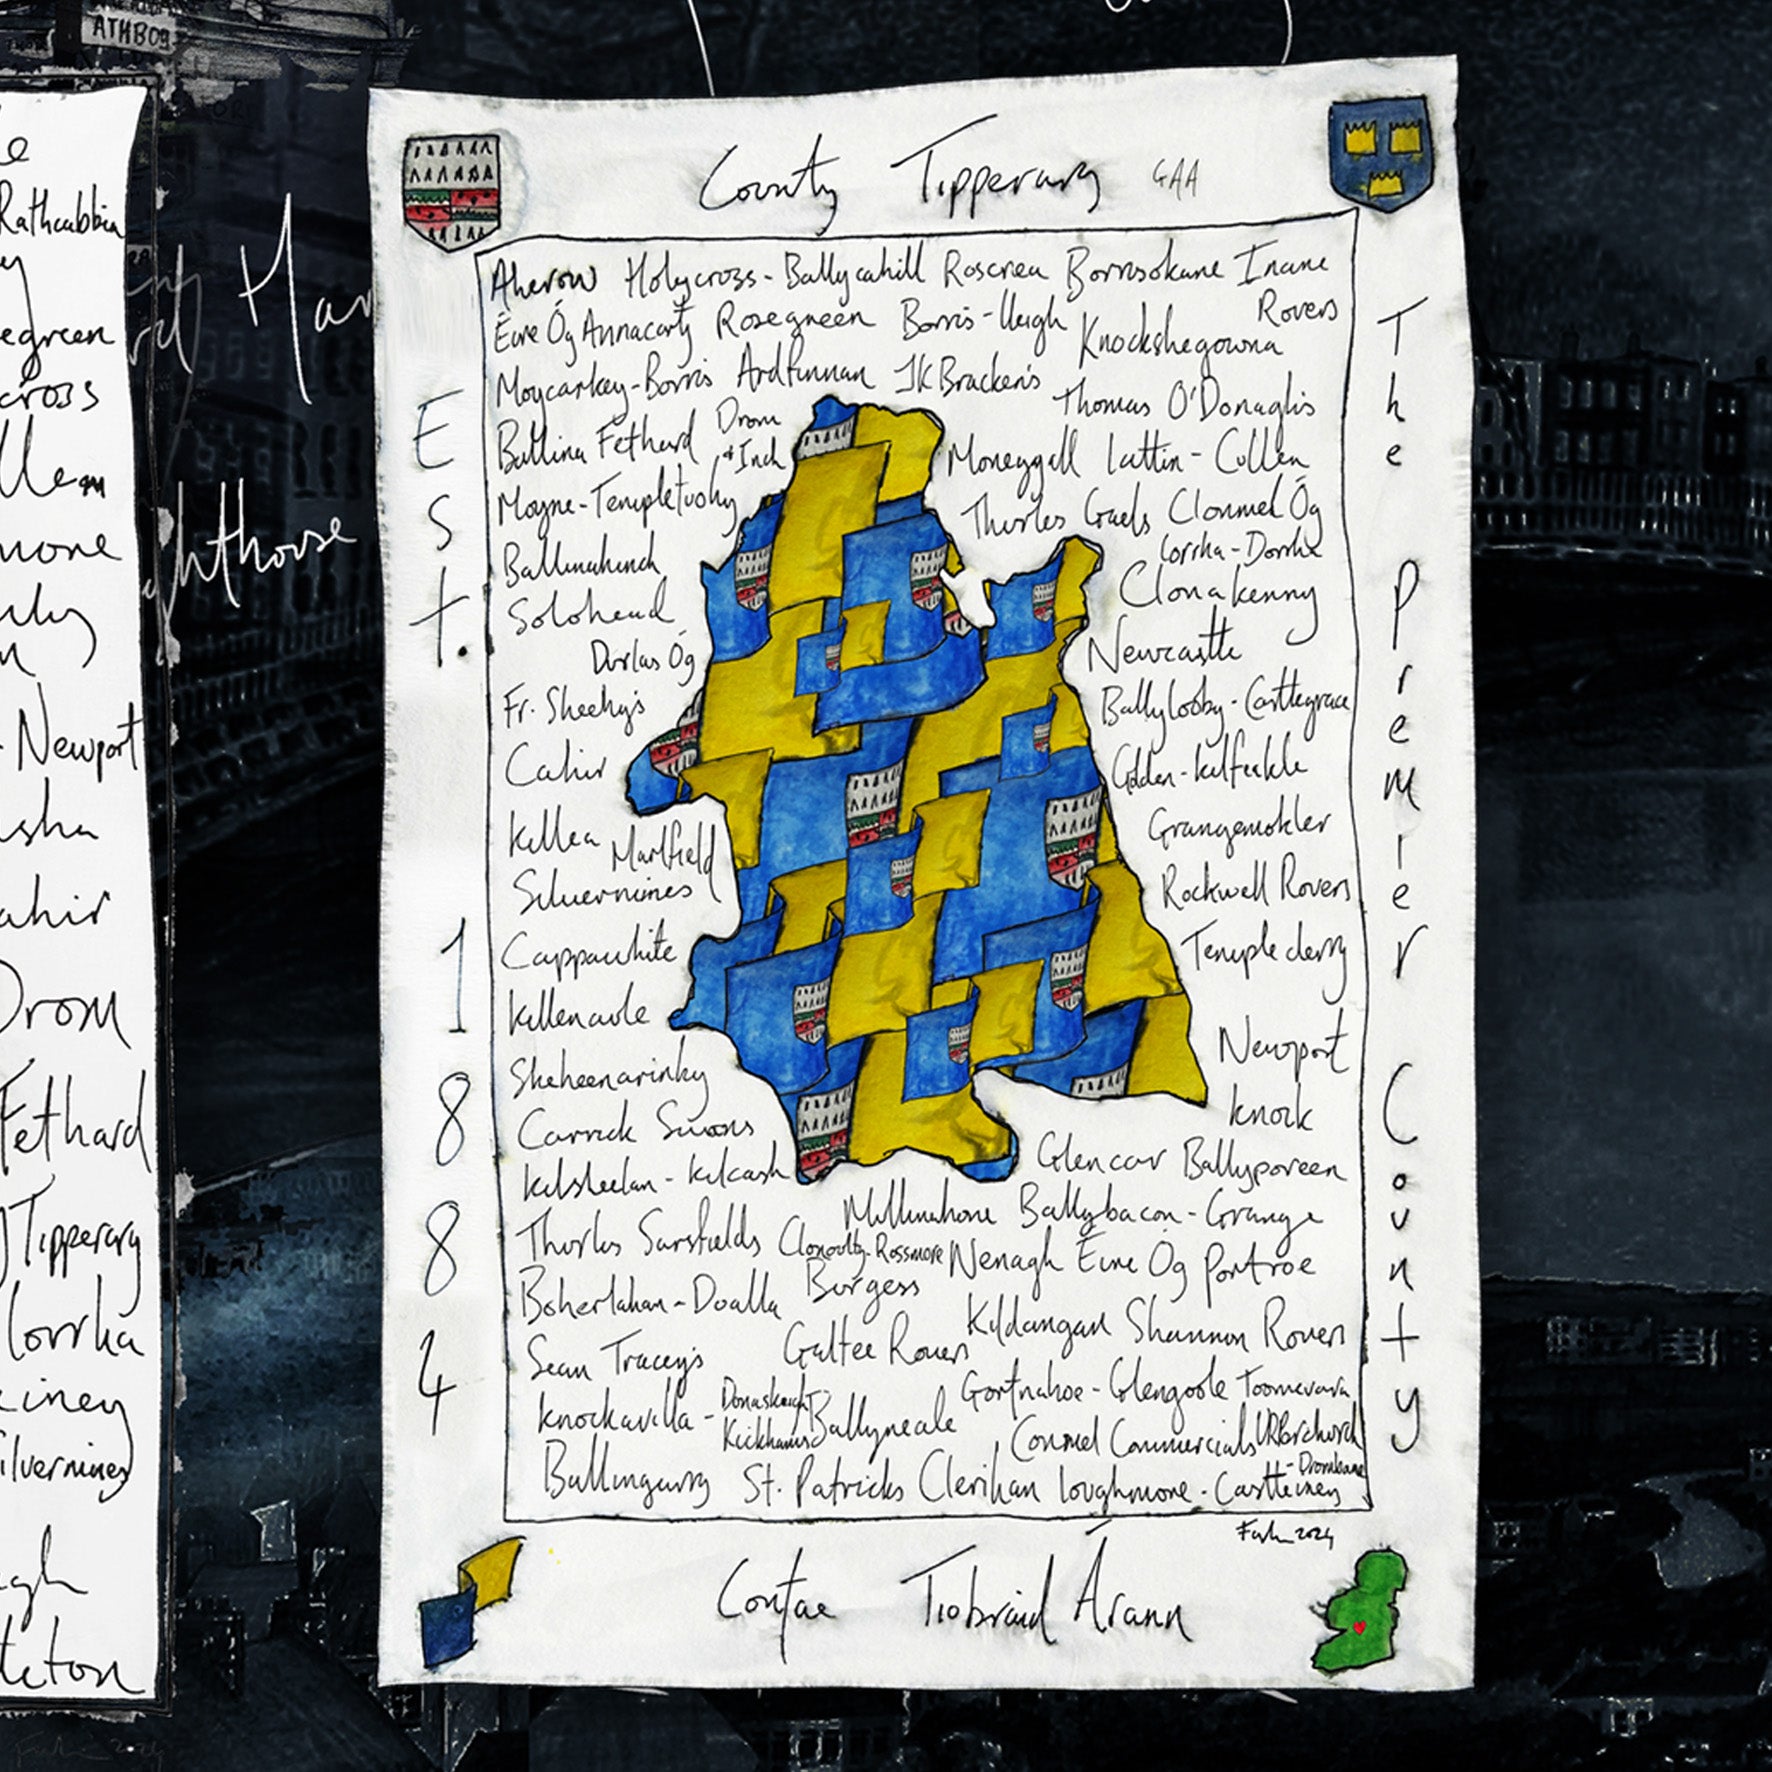 ATHBOY
County Tipperary GAA
Aherlow Holycross-Ballycahill Roscrea Borrisokane Inane Rovers
Éire Óg Annacarty Rosegreen Borris-Ileigh Knockshegowna
Moycarkey-Borris Ardfinnan JK Bracken's Thomas O'Donaghs
Ballina Fethard Drom & Inch Moneygall Lattin-Cullen
Moyne-Templetuohy Thurles Gaels Clonmel Óg
Ballinahinch Lorrha-Dorrha
Solohead Clonakenny
Durlas Óg Newcastle
Fr. Sheehy's Ballylooby-Castlegrace
Cahir Golden-Kilfeakle
Killea Marlfield Grangemokler
Silvermines Rockwell Rovers
Cappawhite Templederry
Killenaule Newport
Skeheenarinky Knock
Carrick Swans
Kilsheelan-Kilcash Glencar Ballyporeen
Mullinahone Ballybacon-Grange
Thurles Sarsfields Clonoulty-Rossmore Nenagh Éire Óg Portroe
Boherlahan-Dualla Burgess
Kildangan Shannon Rovers
Sean Tracey's Galtee Rovers
Gortnahoe-Glengoole Toomevara
Knockavilla-Donaskeagh Kickhams Ballyneale Conmel Commercials
Ballingarry St. Patricks Clerihan Loughmore-Castleiney
Est. 1884
The Premier County
2024
Contae Tiobraid Árann
Rathcabbin
cross
Newport
Drom
Fethard
Tipperary
Lorrha
ghthouse